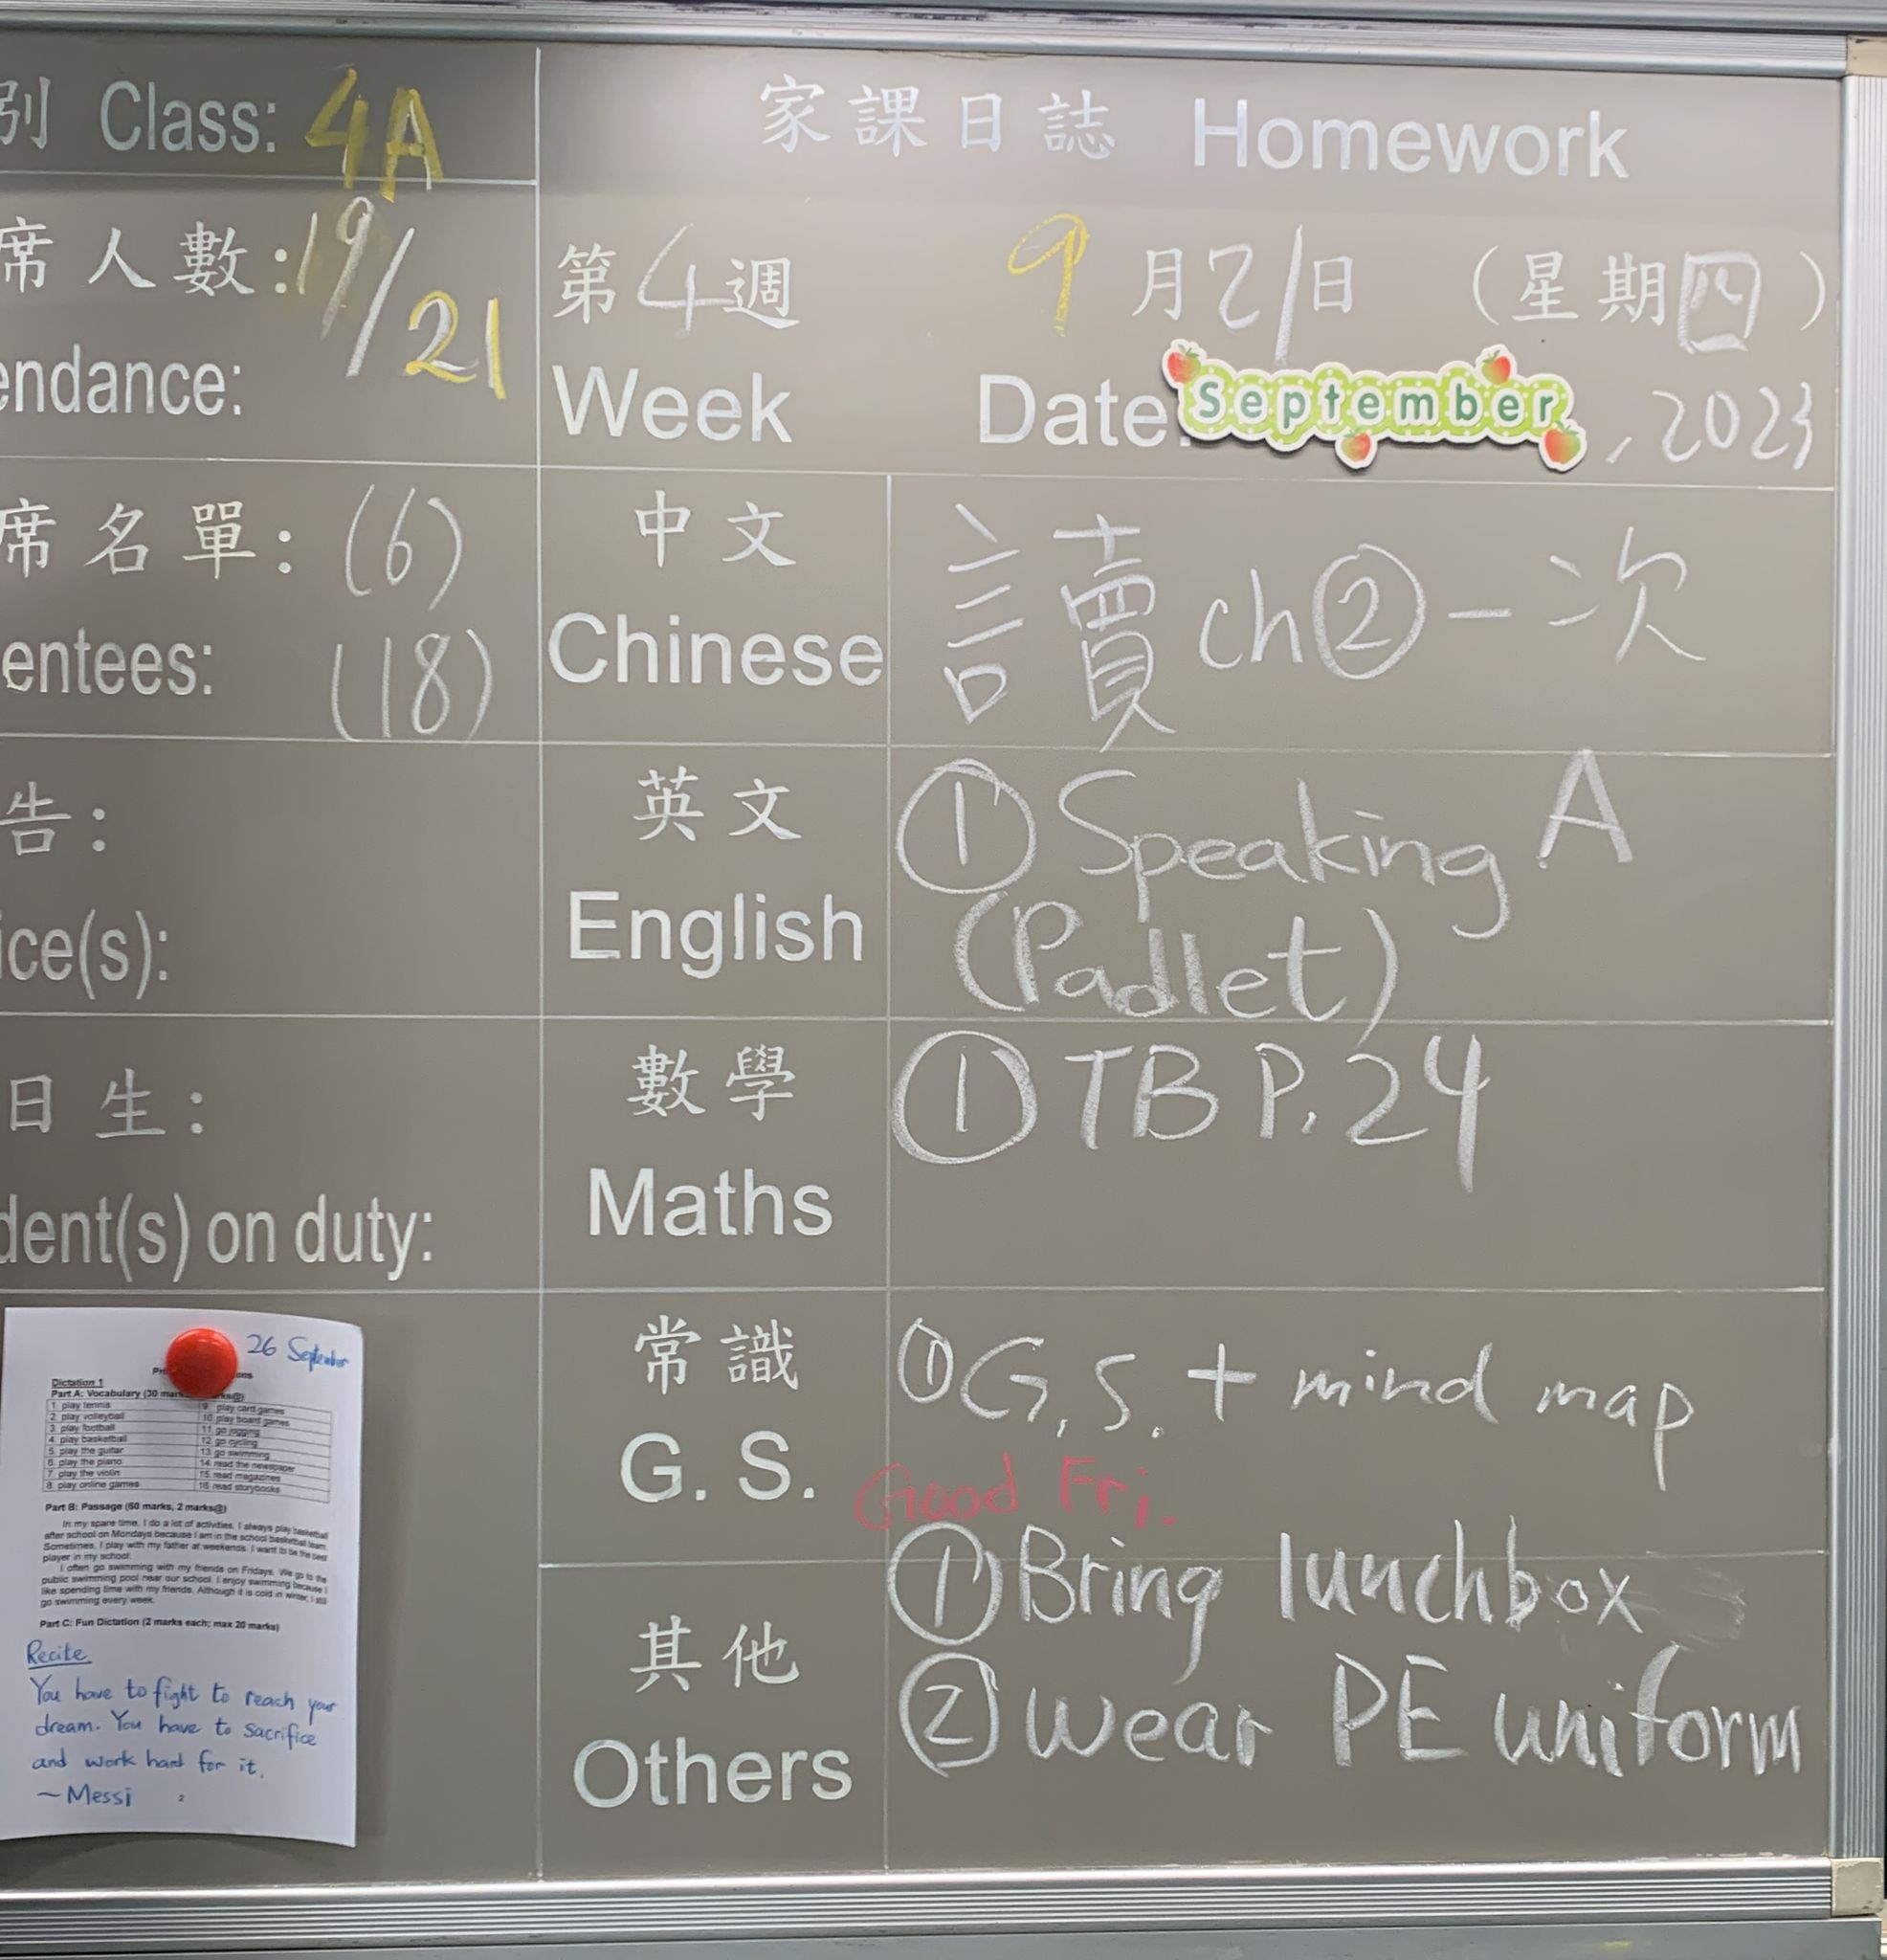 別 Class: 4A
席人數: 19/21
endance:
席名單: (6)
entees: (18)
告:
ice(s):
日生:
dent(s) on duty:
家課日誌 Homework
第4週 9月21日 (星期四)
Week Date: September, 2023
中文 讀ch②一次
Chinese
英文 ① Speaking A
English (Padlet)
數學 ① TB P.24
Maths
常識 ① G.S. + mind map
G. S.
Good Fri.
其他 ① Bring lunchbox
Others ② wear PE uniform
26 September
Dictation 1
Part A: Vocabulary (30 mar
1. play tennis 9. play card games
2. play volleyball 10. play board games
3. play football 11. go jogging
4. play basketball 12. go cycling
5. play the guitar 13. go swimming
6. play the piano 14. read the newspaper
7. play the violin 15. read magazines
8. play online games 16. read storybooks
Part B: Passage (60 marks, 2 marks@)
In my spare time, I do a lot of activities. I always play basketball
after school on Mondays because I am in the school basketball team.
Sometimes, I play with my father at weekends. I want to be the best
player in my school.
I often go swimming with my friends on Fridays. We go to the
public swimming pool near our school. I enjoy swimming because I
like spending time with my friends. Although it is cold in winter, I still
go swimming every week.
Part C: Fun Dictation (2 marks each; max 20 marks)
Recite
You have to fight to reach your
dream. You have to sacrifice
and work hard for it.
~Messi
2